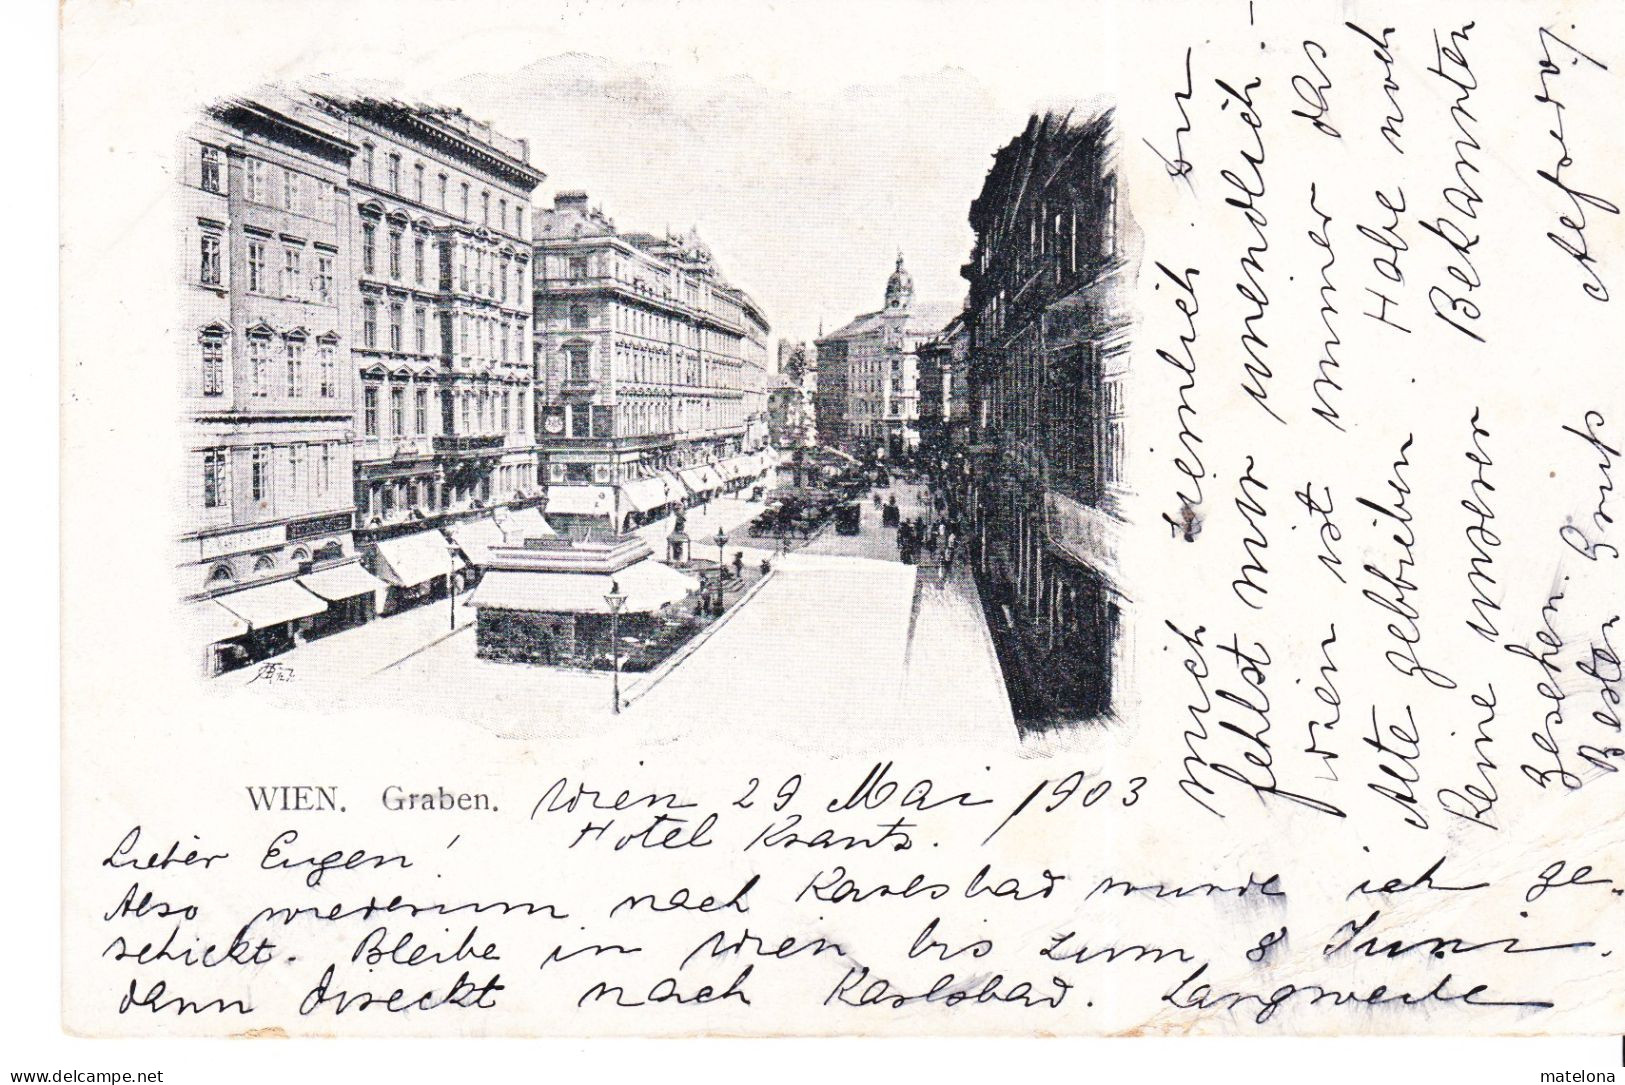 WIEN. Graben.
Wien 29 Mai 1903
Hotel Krantz.
Lieber Eugen!
Also wiederum nach Karlsbad wurde ich ge-
schickt. Bleibe in Wien bis zum 8 Juni.
dann direckt nach Karlsbad. Langweile
mich ziemlich. Du
fehlst mir unendlich. –
Wien ist immer das
Alte gebblieben. Habe noch
Keine unserer Bekannten
gesehen.
Besten Gruß
wien.carte.pdc
matelona